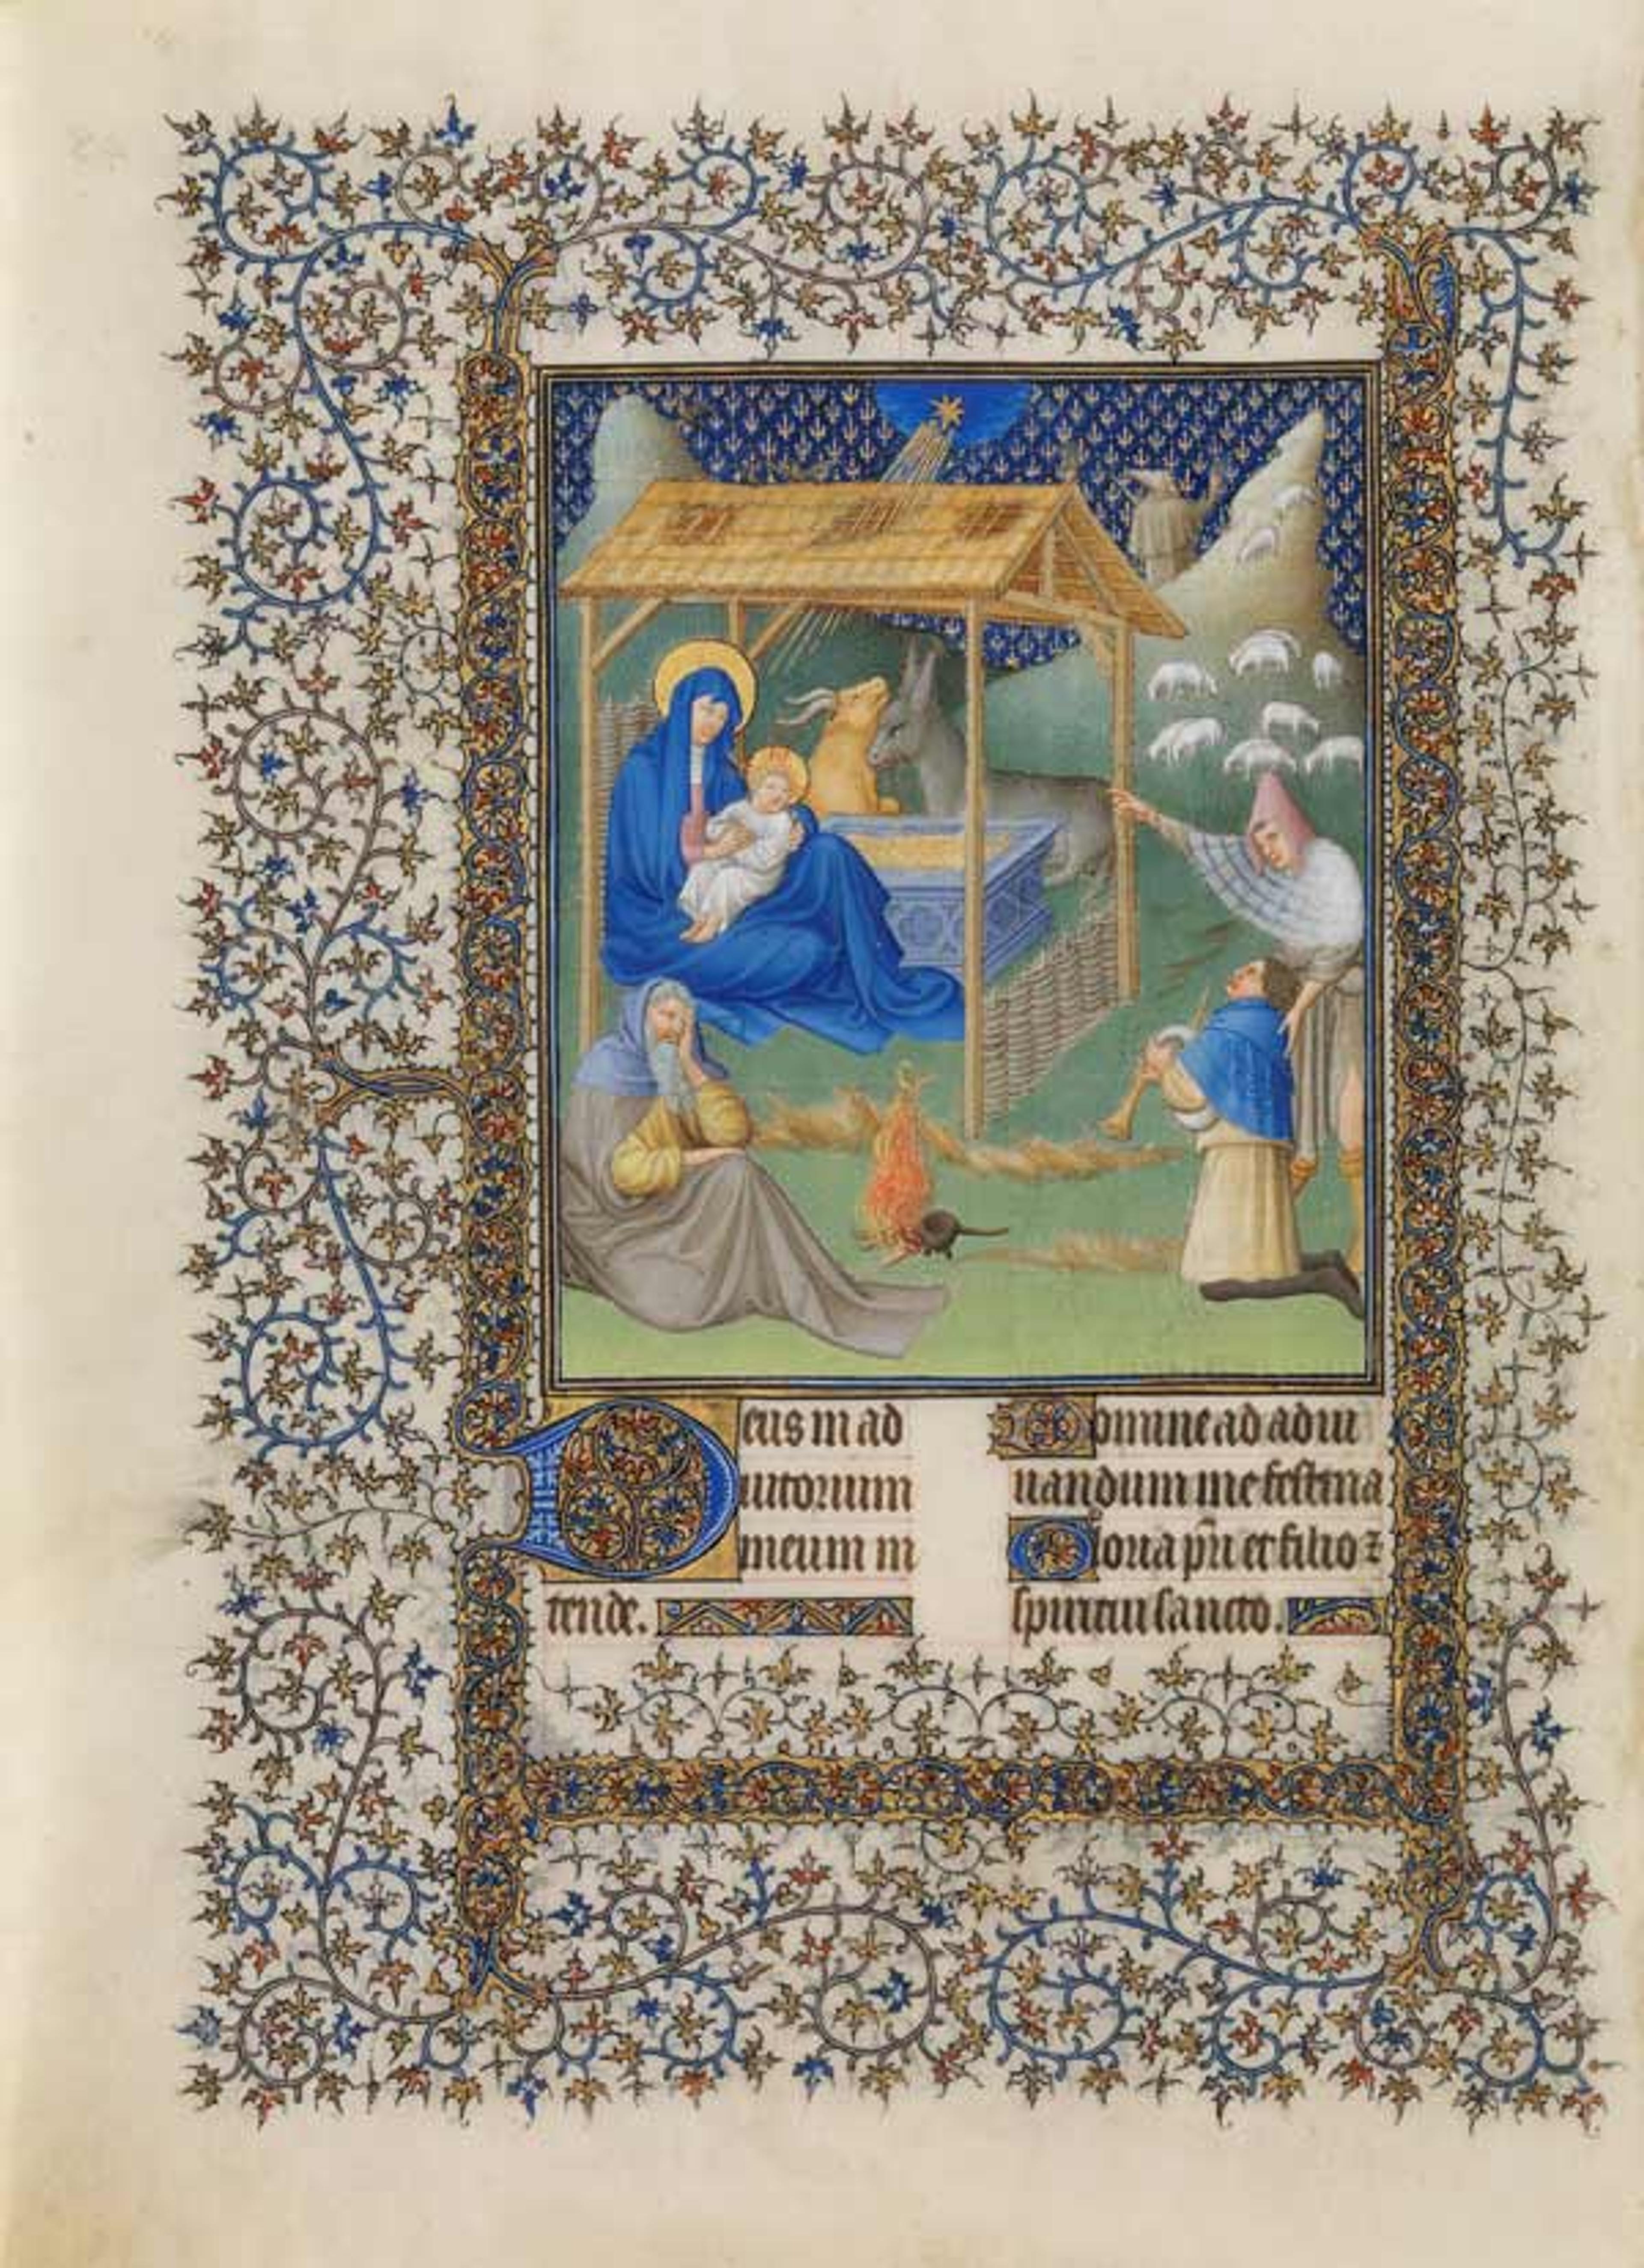 Deus in ad
iutorium
meum in
tende.
Domine ad adiu
uandum me festina
Gloria pri et filio ⁊
spiritui sancto.